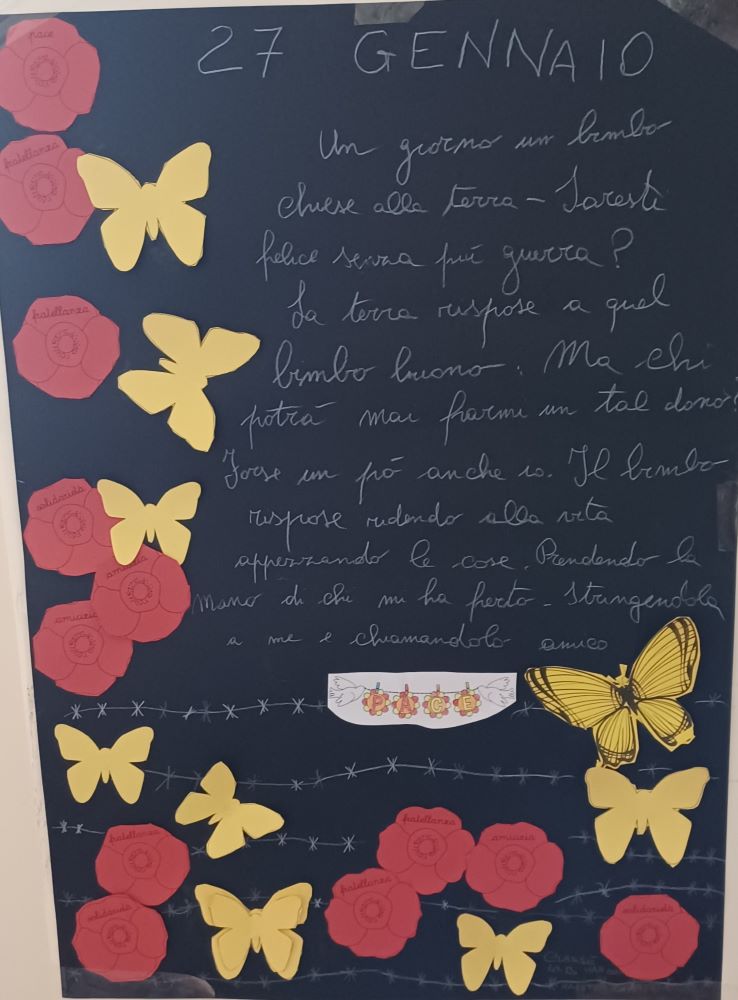 27 GENNAIO
pace
fratellanza
Un giorno un bimbo
chiese alla terra - Saresti
felice senza più guerra?
La terra rispose a quel
bimbo buono. Ma chi
potrà mai farmi un tal dono?
Forse un pó anche io. Il bimbo
rispose ridendo alla vita
apprezzando le cose. Prendendo la
mano di chi mi ha ferto - Stringendola
a me e chiamandolo amico
fratellanza
solidarietà
amicizia
amicizia
PACE
fratellanza
fratellanza
amicizia
solidarietà
fratellanza
solidarietà
CLASSE